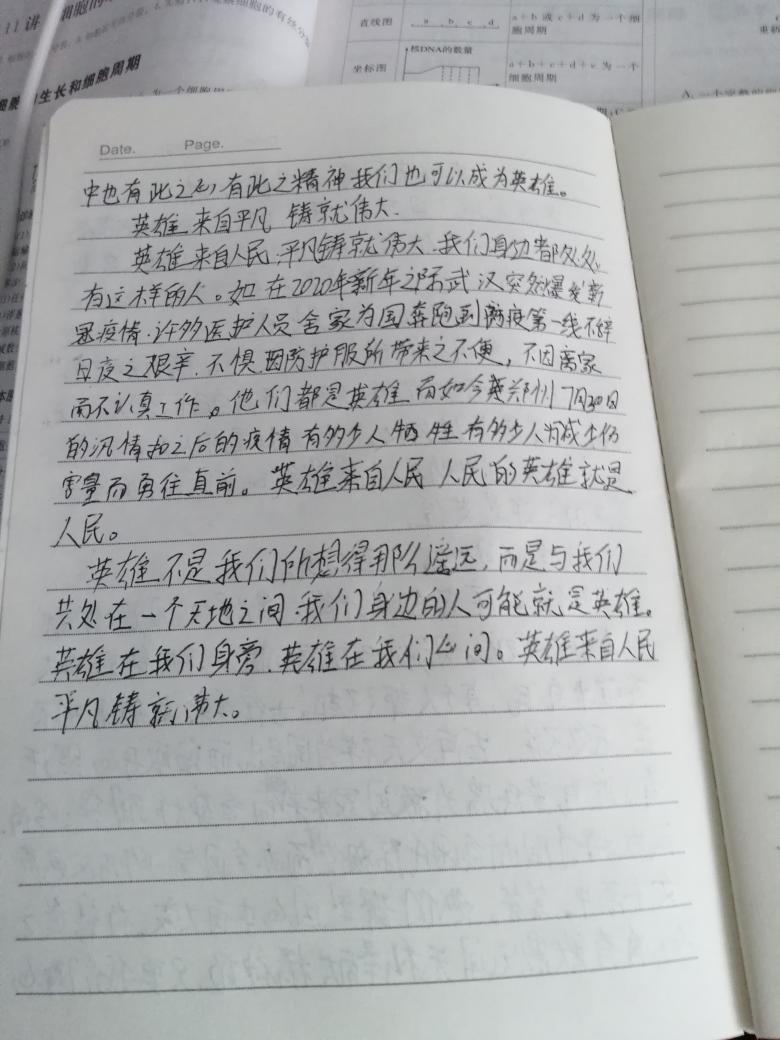 11 讲
胞的生长和细胞周期
直线图
a b c d
a+b 或 c+d 为一个细
胞周期
坐标图
核DNA的数量
a+b+c+d+e 为一个
细胞周期
Date. Page.
中也有此之心,有此之精神我们也可以成为英雄。
英雄来自平凡 铸就伟大.
英雄来自人民,平凡铸就伟大.我们身边都处处
有这样的人。如在2020年新年之际武汉突然爆发新
冠疫情.许多医护人员舍家为国奔跑到防疫第一线不辞
日夜之艰辛.不惧因防护服所带来之不便,不因离家
而不认真工作。他们都是英雄 而如今 郑州7月30日
的汛情和之后的疫情 有多少人牺牲 有多少人
而勇往直前。英雄来自人民 人民的英雄就是
人民。
英雄不是我们所想得那么遥远,而是与我们
共处在一个天地之间 我们身边的人可能就是英雄。
英雄在我们身旁.英雄在我们心间。英雄来自人民
平凡铸就伟大。